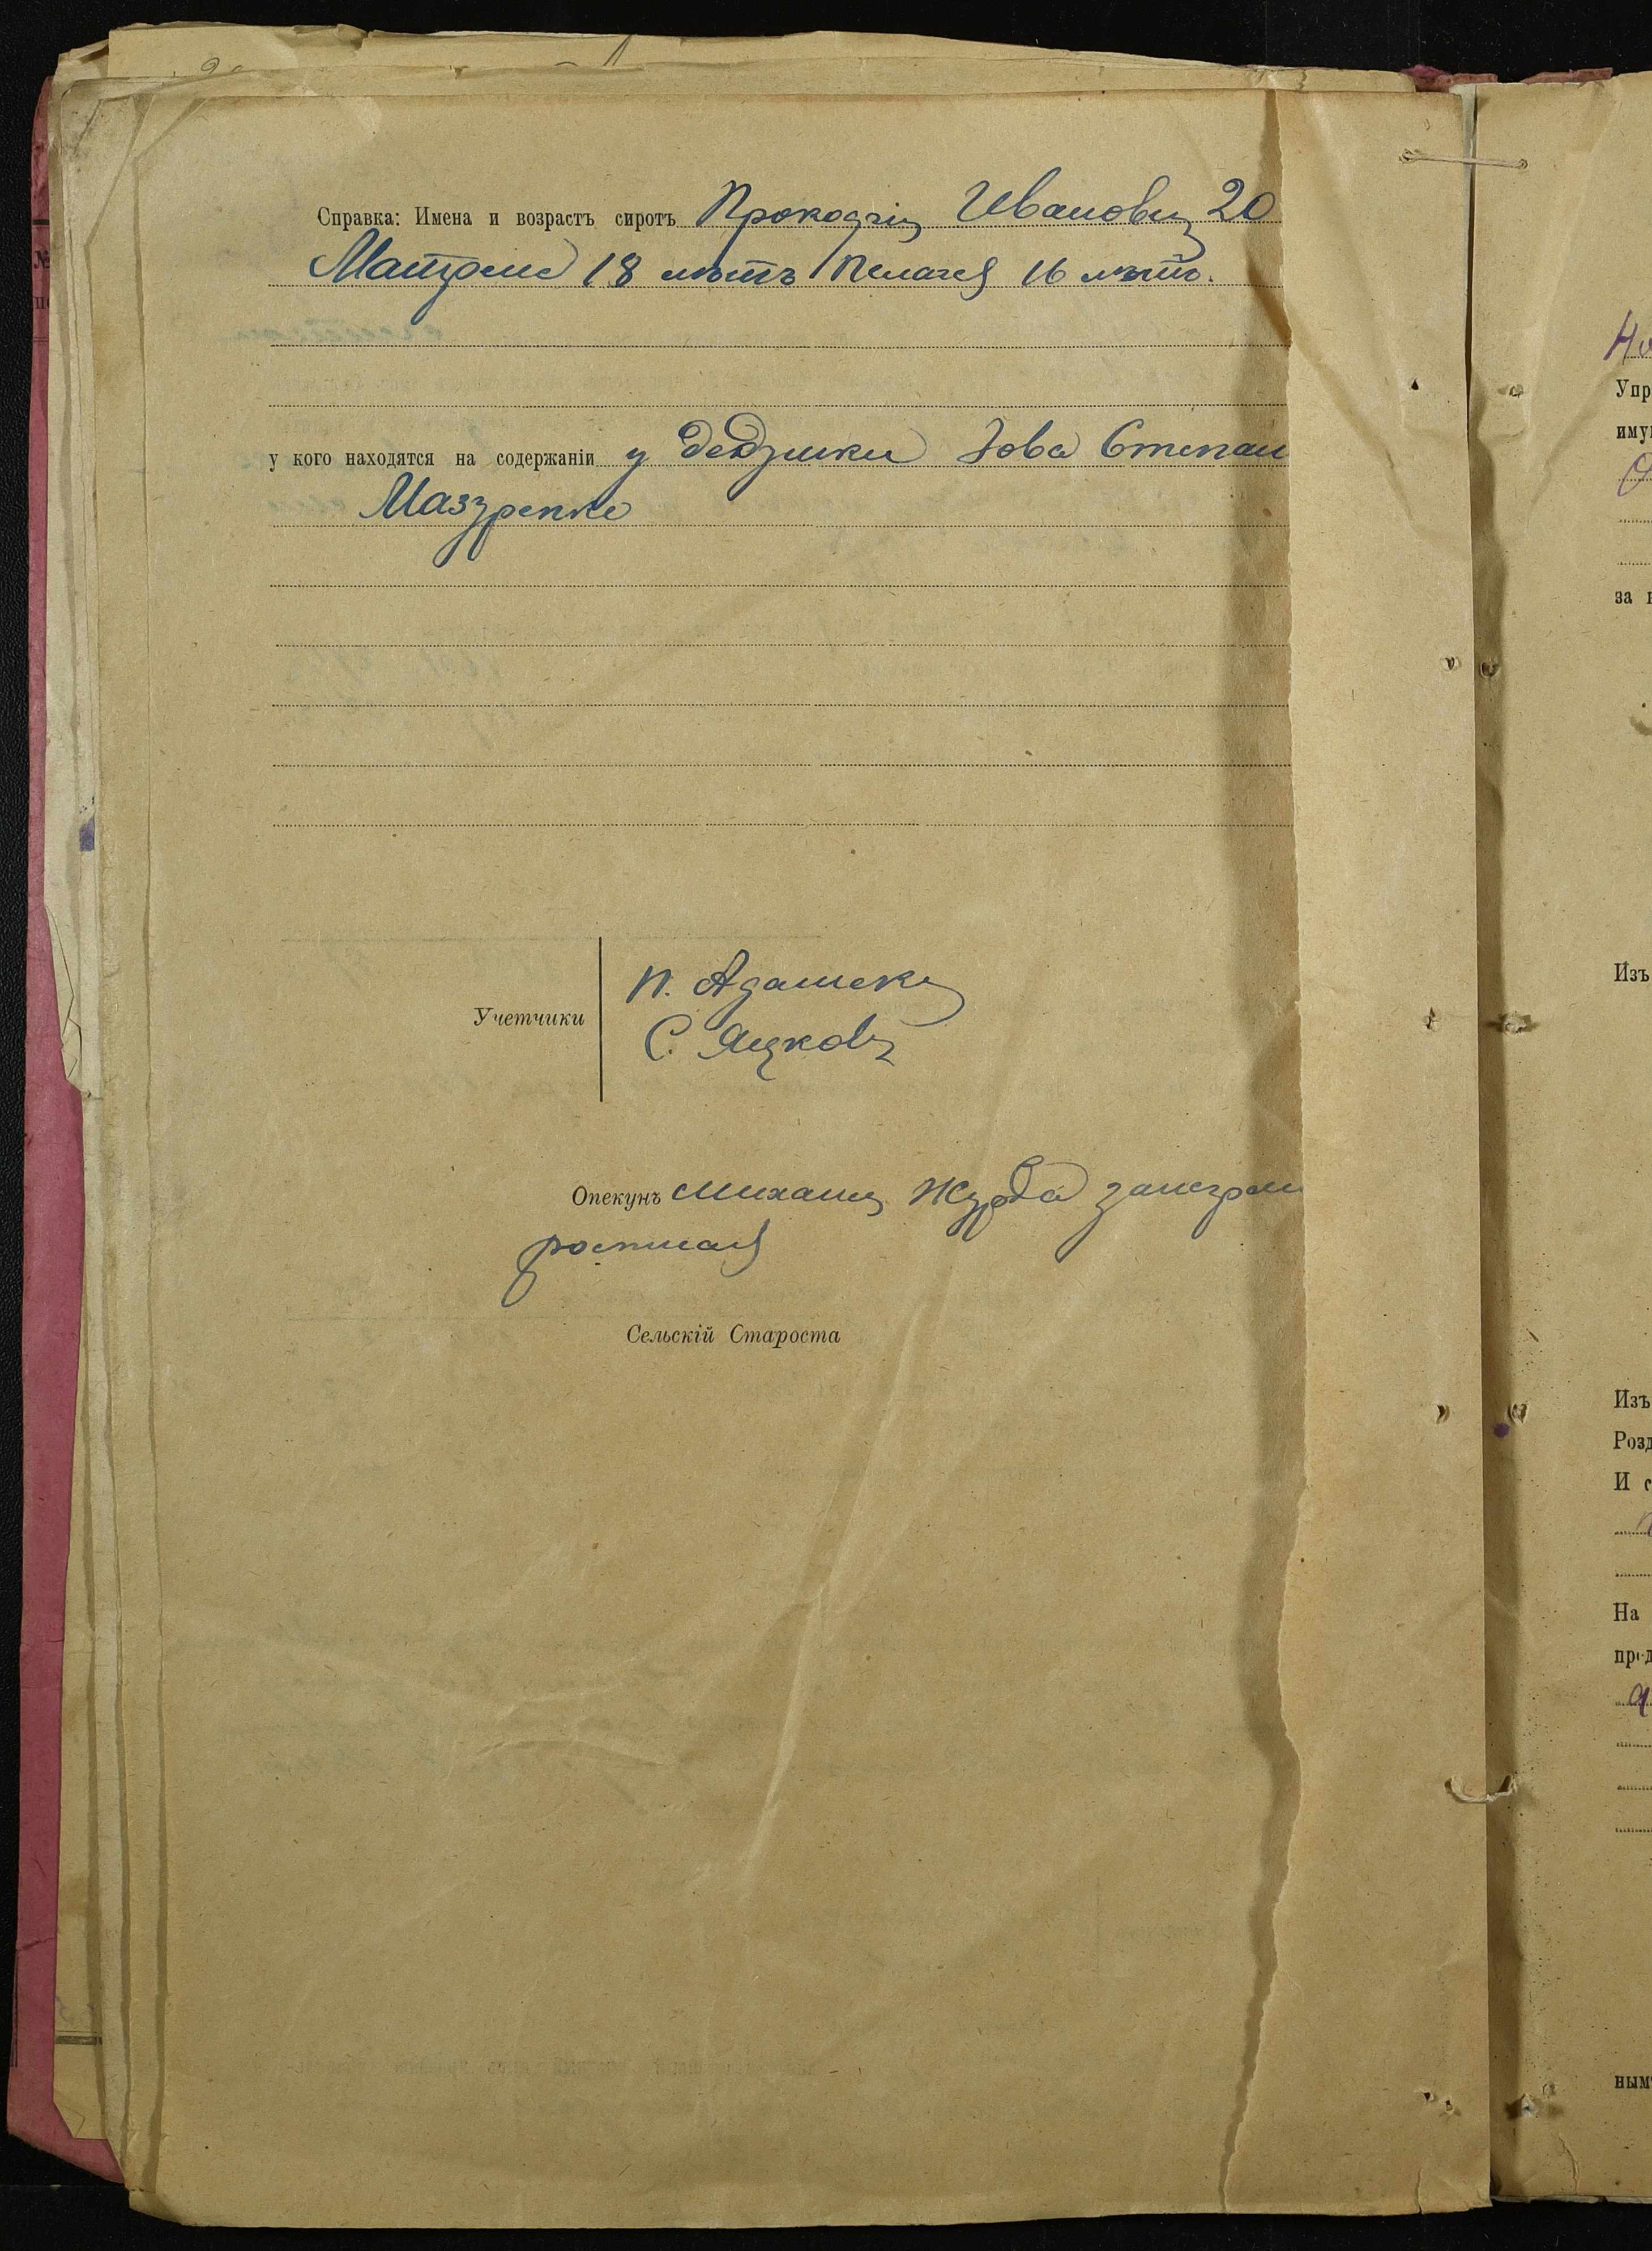 Справка: Имена и возрастъ сиротъ Прокофій Ивановъ 20
Матрена 18 лѣтъ Пелагея 16 лѣтъ.
у кого находятся на содержаніи у дедушки Іова Степан
Мазуренко
Учетчики
С. Яцковъ
Опекунъ Михаилъ Журба
Сельскій Староста
Упр
иму
за
Изъ
Изъ
Розд
И с
На
пред
ным